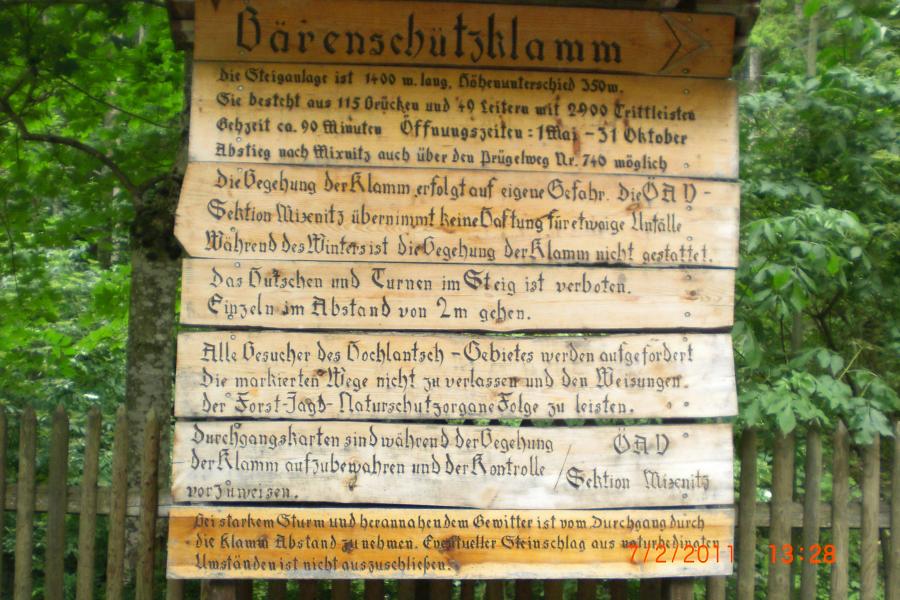 Bärenschützklamm
Die Steiganlage ist 1400 m. lang, Höhenunterschied 350 m.
Sie besteht aus 115 Brücken und 49 Leitern mit 2900 Trittleisten
Gehzeit ca. 90 Minuten Öffnungszeiten: 1 Mai - 31 Oktober
Abstieg nach Mixnitz auch über den Prügelweg Nr. 740 möglich
Die Begehung der Klamm erfolgt auf eigene Gefahr. Die ÖAV -
Sektion Mixnitz übernimmt keine Haftung für etwaige Unfälle
Während des Winters ist die Begehung der Klamm nicht gestattet.
Das Hutschen und Turnen im Steig ist verboten.
Einzeln im Abstand von 2m gehen.
Alle Besucher des Hochlantsch - Gebietes werden aufgefordert
Die markierten Wege nicht zu verlassen und den Weisungen.
der Forst-Jagd- Naturschutzorgane Folge zu leisten.
Durchgangskarten sind während der Begehung
der Klamm aufzubewahren und der Kontrolle
vorzuweisen.
ÖAV
/Sektion Mixnitz
Bei starkem Sturm und herannahendem Gewitter ist vom Durchgang durch
die Klamm Abstand zu nehmen. Eventueller Steinschlag aus naturbedingten
Umständen ist nicht auszuschließen.
7/2/2011 13:28